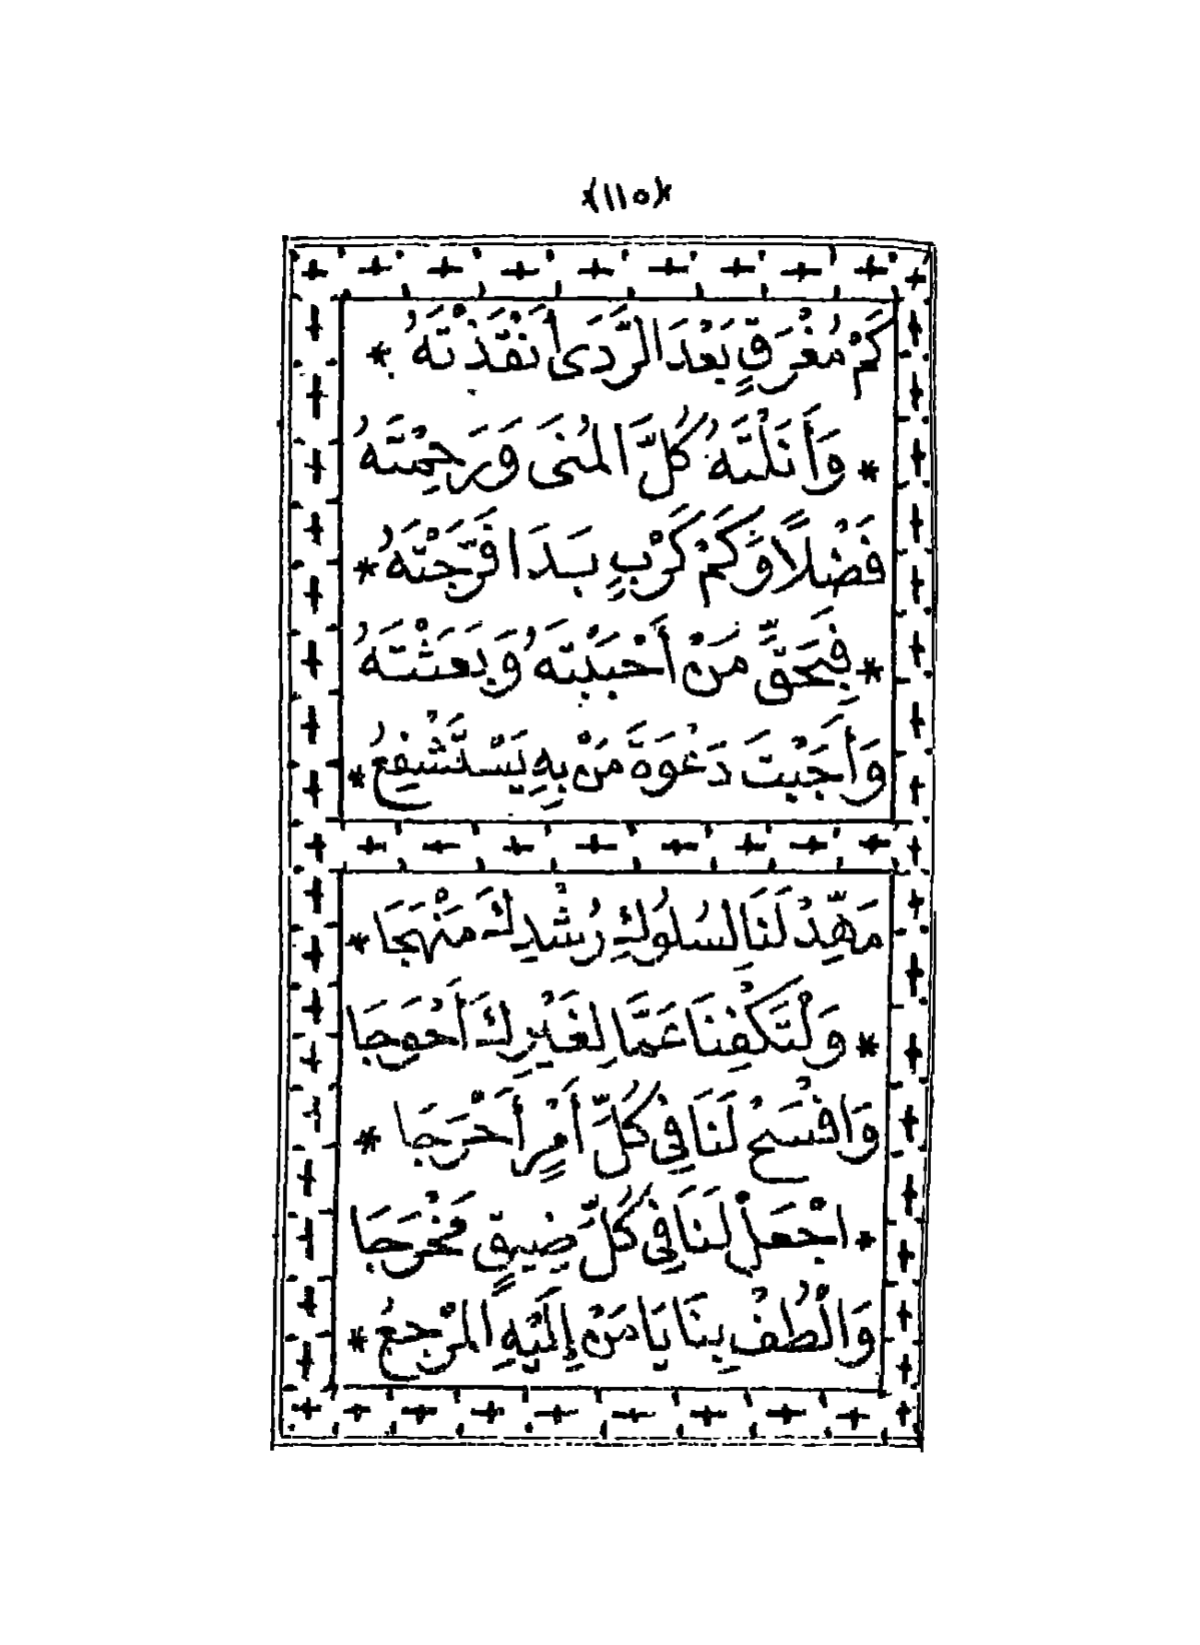 ﴿١١٥﴾
كَمْ مُغْرَقٍ بَعْدَ الرَّدَى أَنْقَذْتَهُ *
* وَأَنَلْتَهُ كُلَّ الْمُنَى وَرَحِمْتَهُ
فَضْلًا وَكَمْ كَرْبٍ بَدَا فَرَّجْتَهُ *
* فَبِحَقِّ مَنْ أَحْبَبْتَهُ وَبَعَثْتَهُ
وَأَجَبْتَ دَعْوَةَ مَنْ بِهِ يَسْتَشْفِعُ *
مَهِّدْ لَنَا لسُلُوكِ رُشْدِكَ مَنْهَجَا *
* وَلْتَكْفِنَا عَمَّا لِغَيْرِكَ أَحْوَجَا
وَافْسَحْ لَنَا فِي كُلِّ أَمْرٍ أَحْرَجَا *
* اجْعَلْ لَنَا فِي كُلِّ ضِيقٍ مَخْرَجَا
وَالْطُفْ بِنَا يَا مَنْ إِلَيْهِ الْمَرْجِعُ *